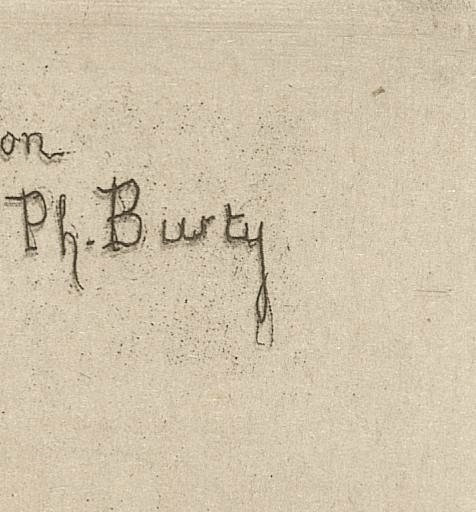 on
Ph. Burty